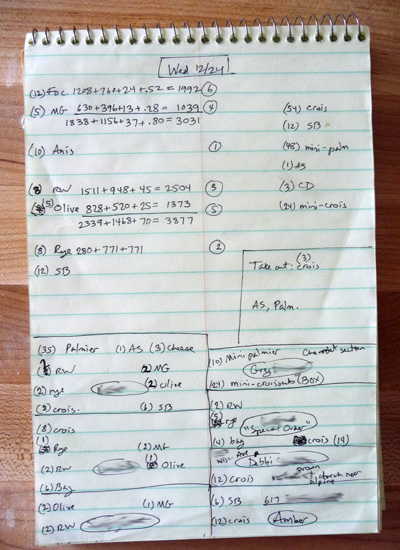 Wed 12/24
(12) Foc 1208+760+24+.52=1992 (6)
(5) MG 630+396+13+.28=1039 (4)
1838+1156+37+.80=3031
(54) crois
(12) SB
(10) Anis (1)
(48) mini-palm
(1) AS
(8) RW 1511+948+45=2504 (3)
(3) CD
(5) Olive 828+520+25=1373 (5)
(24) mini-crois
2339+1468+70=3877
(8) Rye 280+771+771 (2)
(12) SB
(3)
Take out: crois
AS, Palm.
(35) Palmier (1) AS (3) Cheese
RW (2) MG
(2) rye (2) Olive
(9) crois. (6) SB
(8) crois
(1) Rye (2) MG
(2) RW (1) Olive
(6) Bag
(2) Olive (1) MG
(2) RW
(10) Mini palmier
Greg
(24) mini-croissants (Box)
(2) RW
(5) rye "Special Order"
(4) bag crois (14)
Debbi
(12) Crois
(6) SB 617
(12) crois Amber